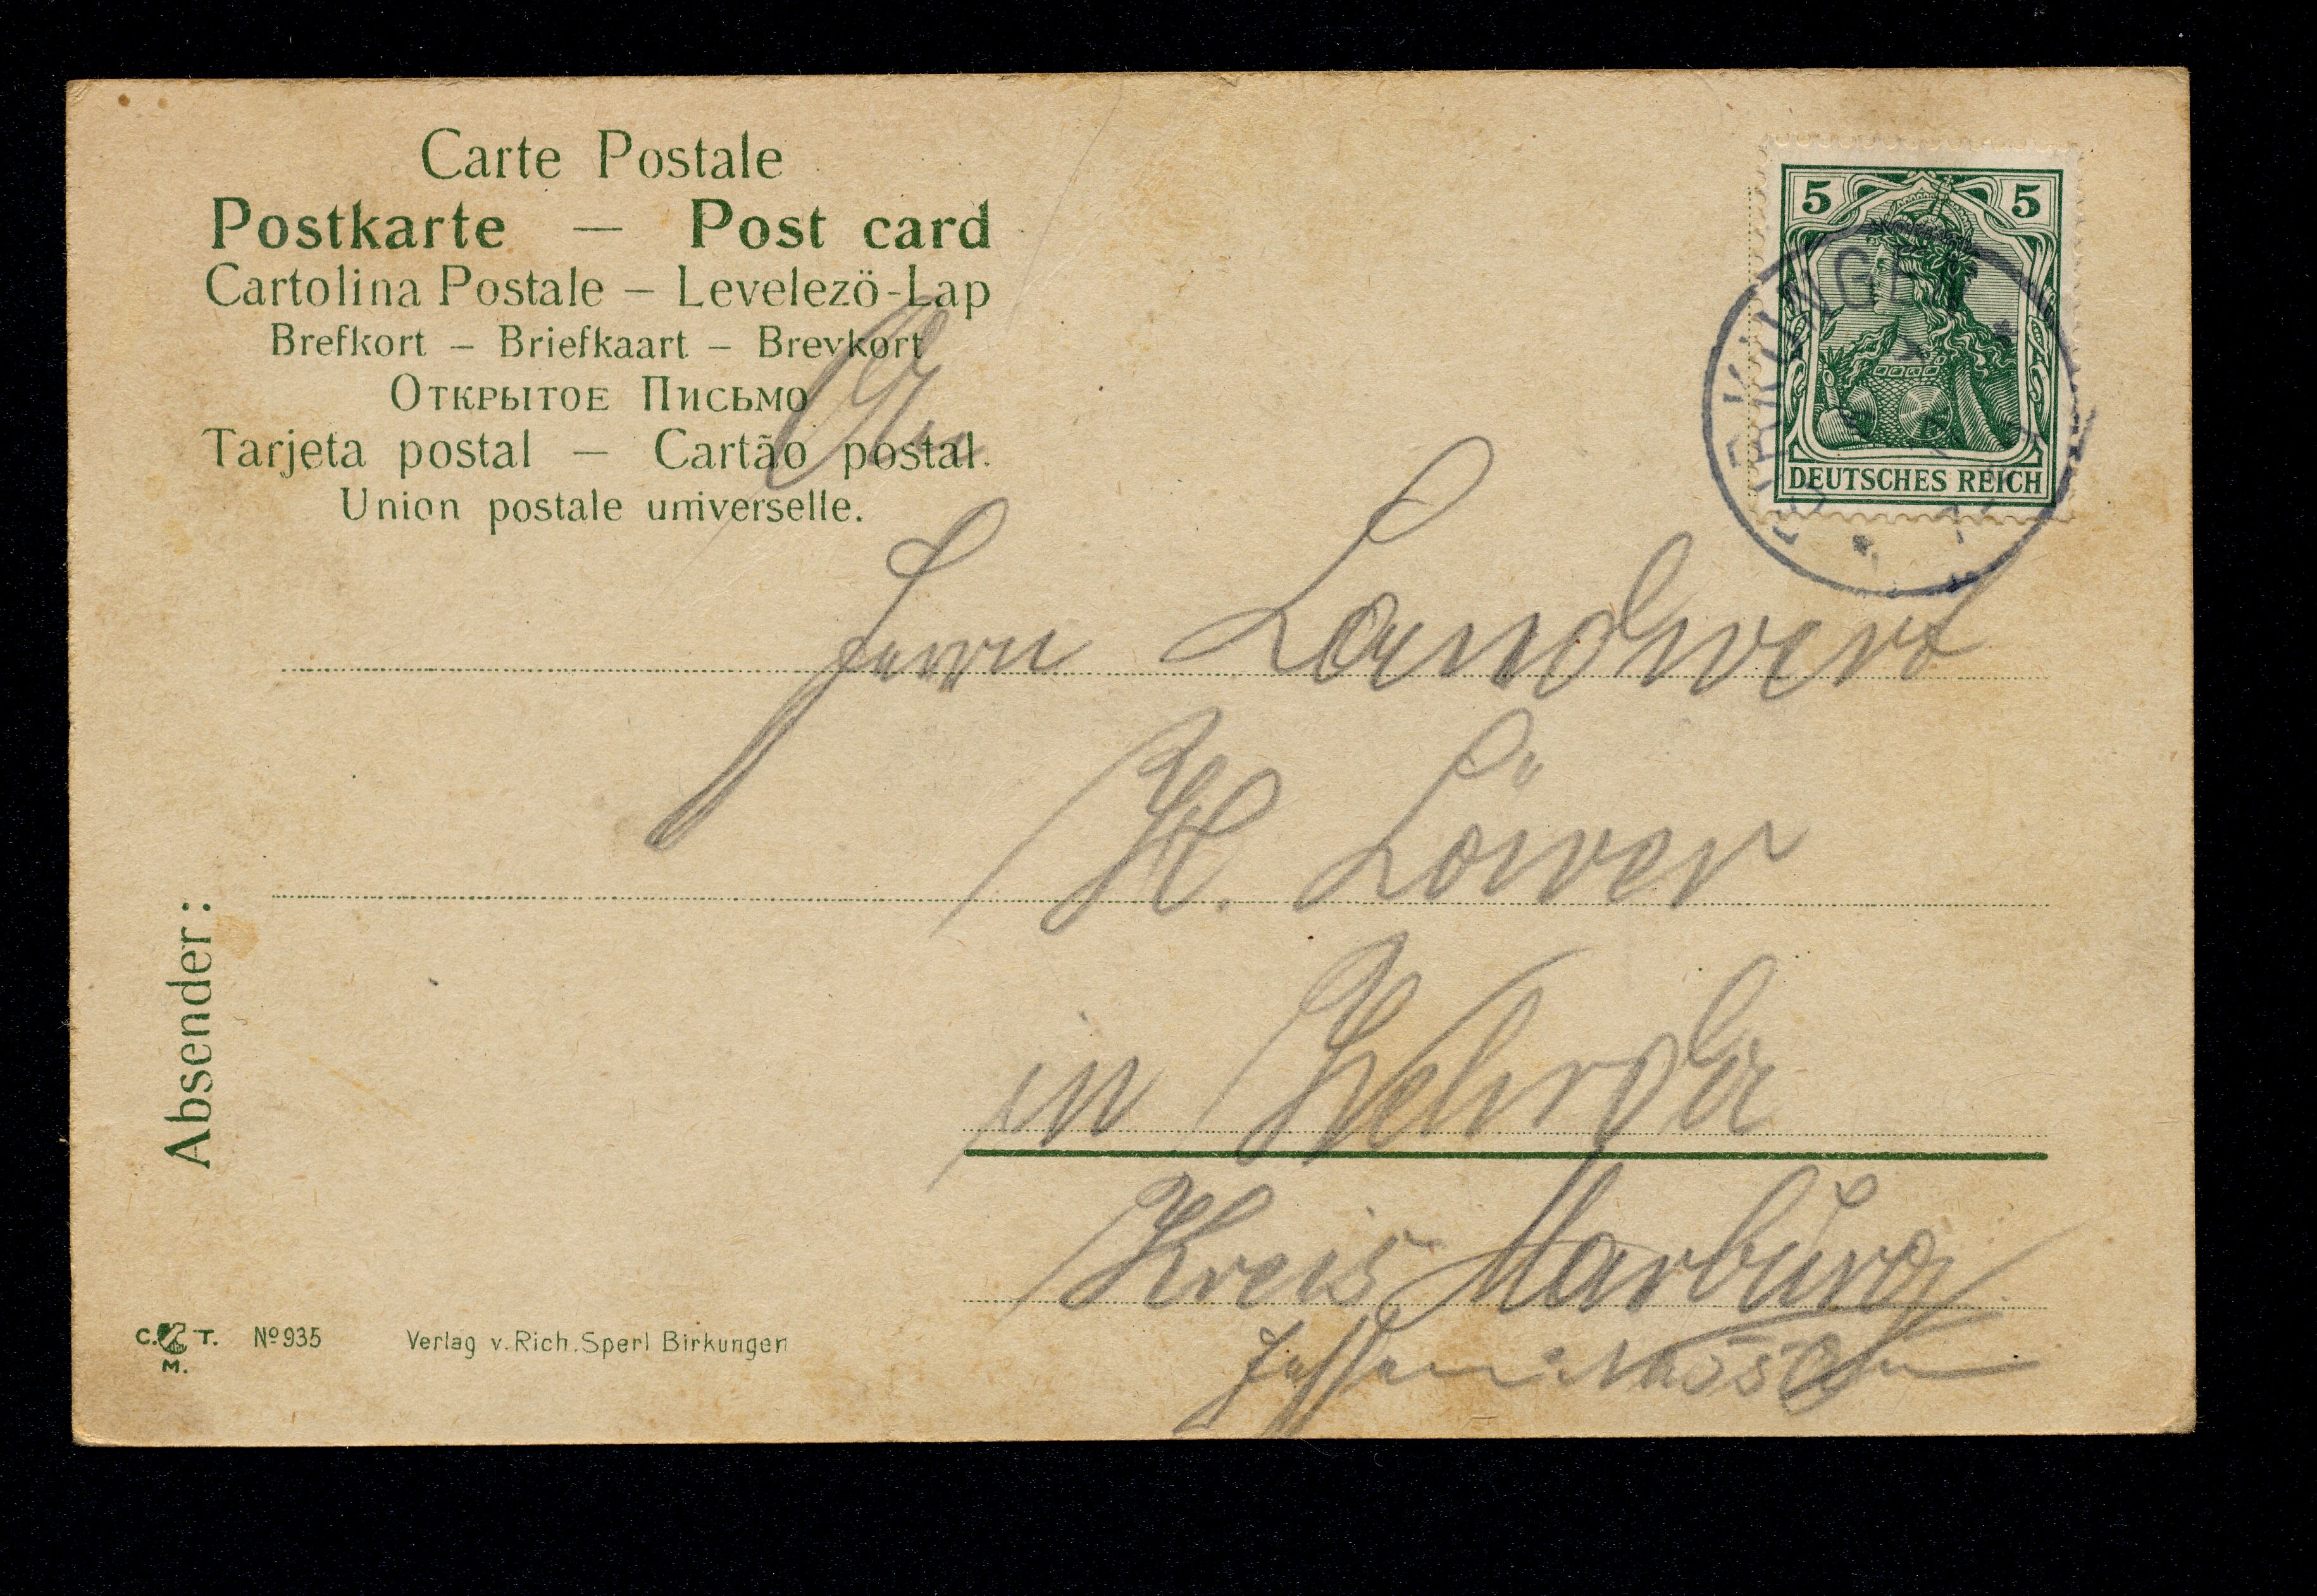 Carte Postale
Postkarte — Post card
Cartolina Postale – Levelezö-Lap
Brefkort – Briefkaart – Brevkort
Открытое Письмо
Tarjeta postal — Cartão postal.
Union postale universelle.
5 5
DEUTSCHES REICH
BIRKUNGEN
An
Herrn Landwirt
H. Löwer
in Wehrda
Kreis Marburg
Hessen-Nassau
Absender:
C. T.
M.
Nº 935
Verlag v. Rich. Sperl Birkungen